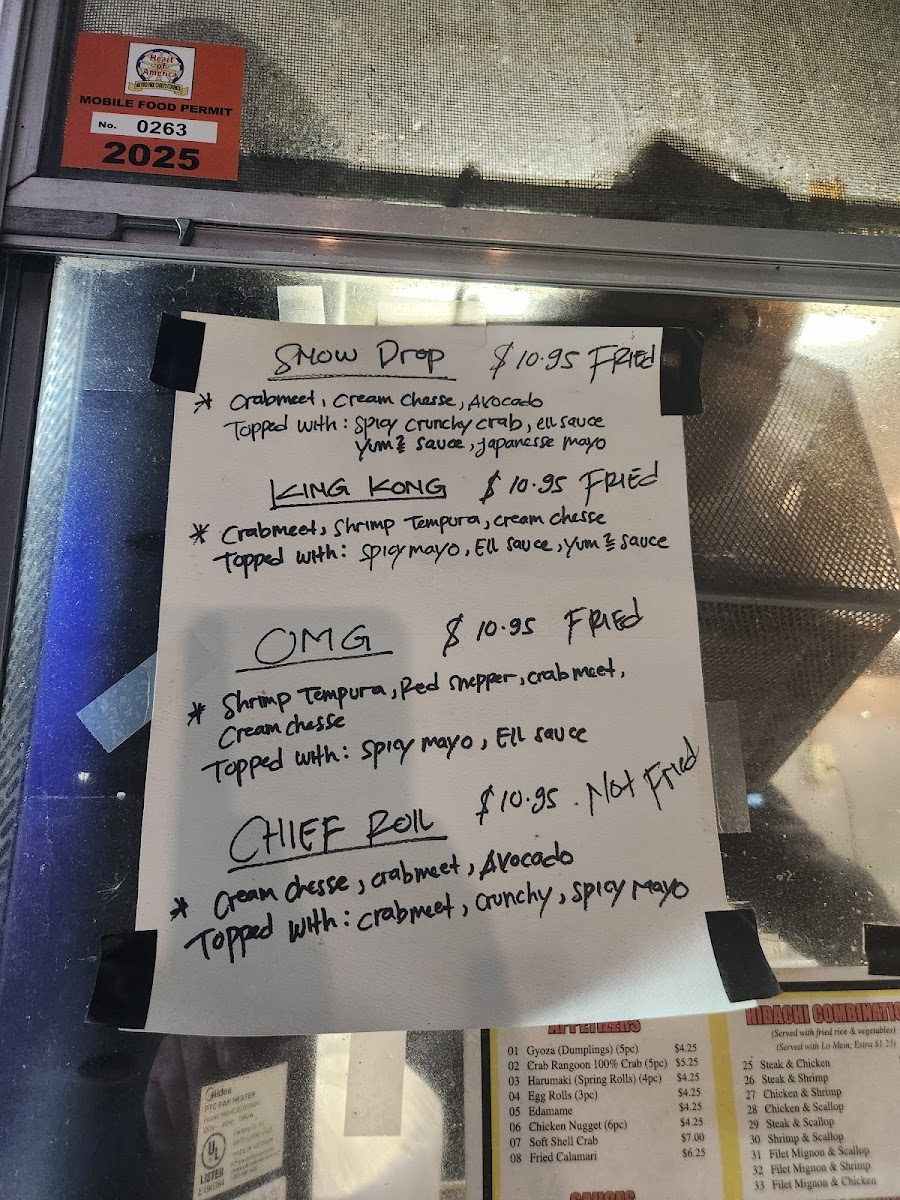 Heart
of
America
MOBILE FOOD PERMIT
No. 0263
2025
SNOW DROP $10.95 FRIED
* Crabmeet, cream chesse, Avocado
Topped with: spicy crunchy crab, ell sauce
Yum2 sauce, japanesse mayo
KING KONG $10.95 FRIED
* Crabmeet, shrimp Tempura, cream chesse
Topped with: spicy mayo, Ell sauce, Yum2 sauce
OMG $10.95 FRIEd
* Shrimp Tempura, Red snepper, crabmeet,
Cream chesse
Topped with: spicy mayo, Ell sauce
CHIEF ROIL $10.95. Not Fried
* Cream chesse, crabmeet, Avocado
Topped with: crabmeet, crunchy, spicy mayo
APPETIZERS
01 Gyoza (Dumplings) (5pc) $4.25
02 Crab Rangoon 100% Crab (5pc) $5.25
03 Harumaki (Spring Rolls) (4pc) $4.25
04 Egg Rolls (3pc) $4.25
05 Edamame $4.25
06 Chicken Nugget (6pc) $4.25
07 Soft Shell Crab $7.00
08 Fried Calamari $6.25
SAUCES
HIBACHI COMBINATIO
(Served with fried rice & vegetables)
(Served with Lo Mein, Extra $1.25)
25 Steak & Chicken
26 Steak & Shrimp
27 Chicken & Shrimp
28 Chicken & Scallop
29 Steak & Scallop
30 Shrimp & Scallop
31 Filet Mignon & Scallop
32 Filet Mignon & Shrimp
33 Filet Mignon & Chicken
Midea
PTC FAN HEATER
UL
LISTED